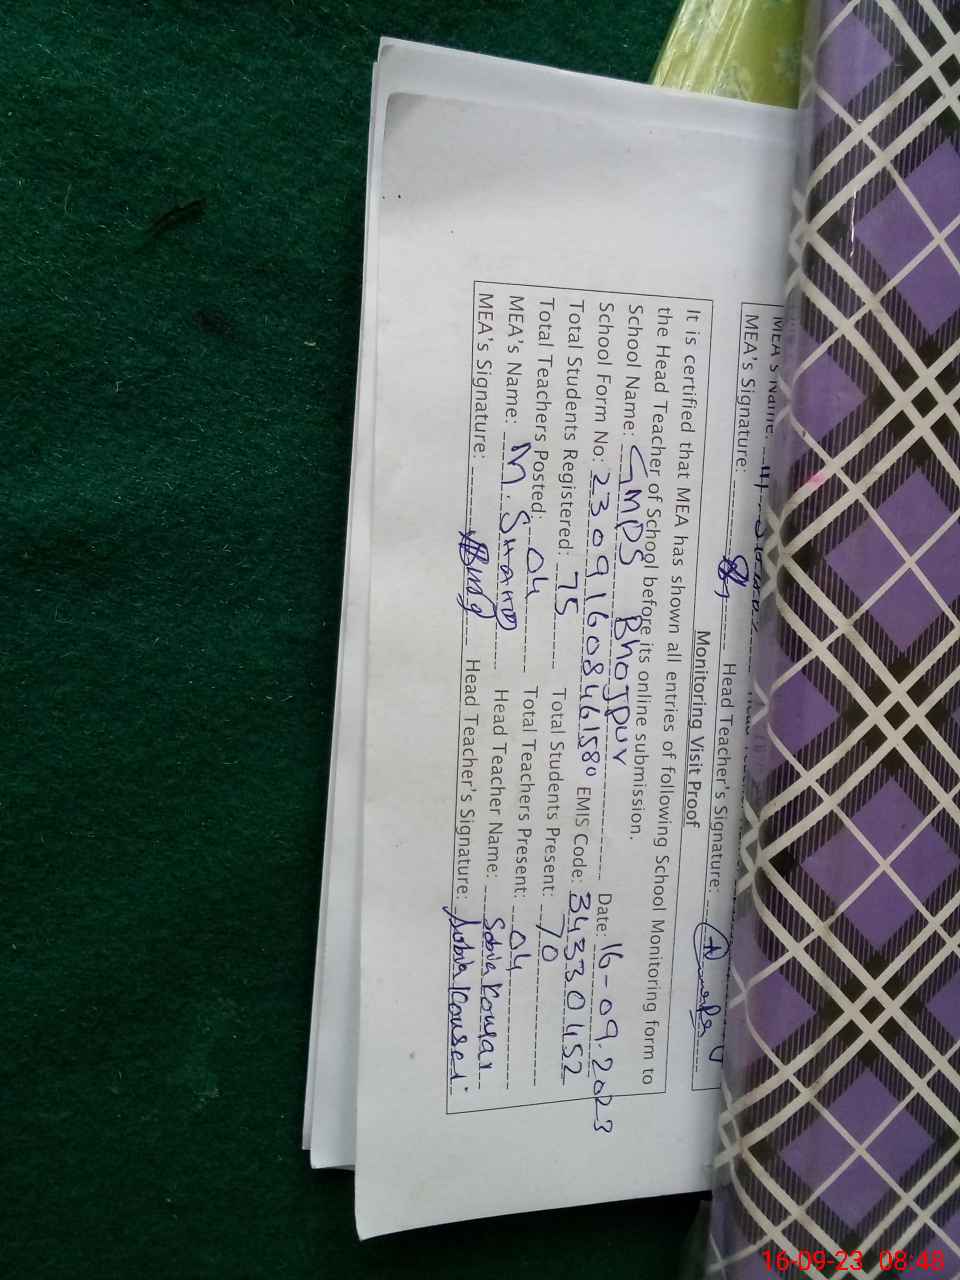 MEA's Name:
MEA's Signature: Head Teacher's Signature:
Monitoring Visit Proof
It is certified that MEA has shown all entries of following School Monitoring form to
the Head Teacher of School before its online submission.
School Name: GMPS Bhojpur Date: 16-09.2023
School Form No: 23091608461580 EMIS Code: 34330452
Total Students Registered: 75 Total Students Present: 70
Total Teachers Posted: 04 Total Teachers Present: 04
MEA's Name: M. Head Teacher Name: Sobia Kousar
MEA's Signature: Head Teacher's Signature: Sobia Kousar
16-09-23 08:48